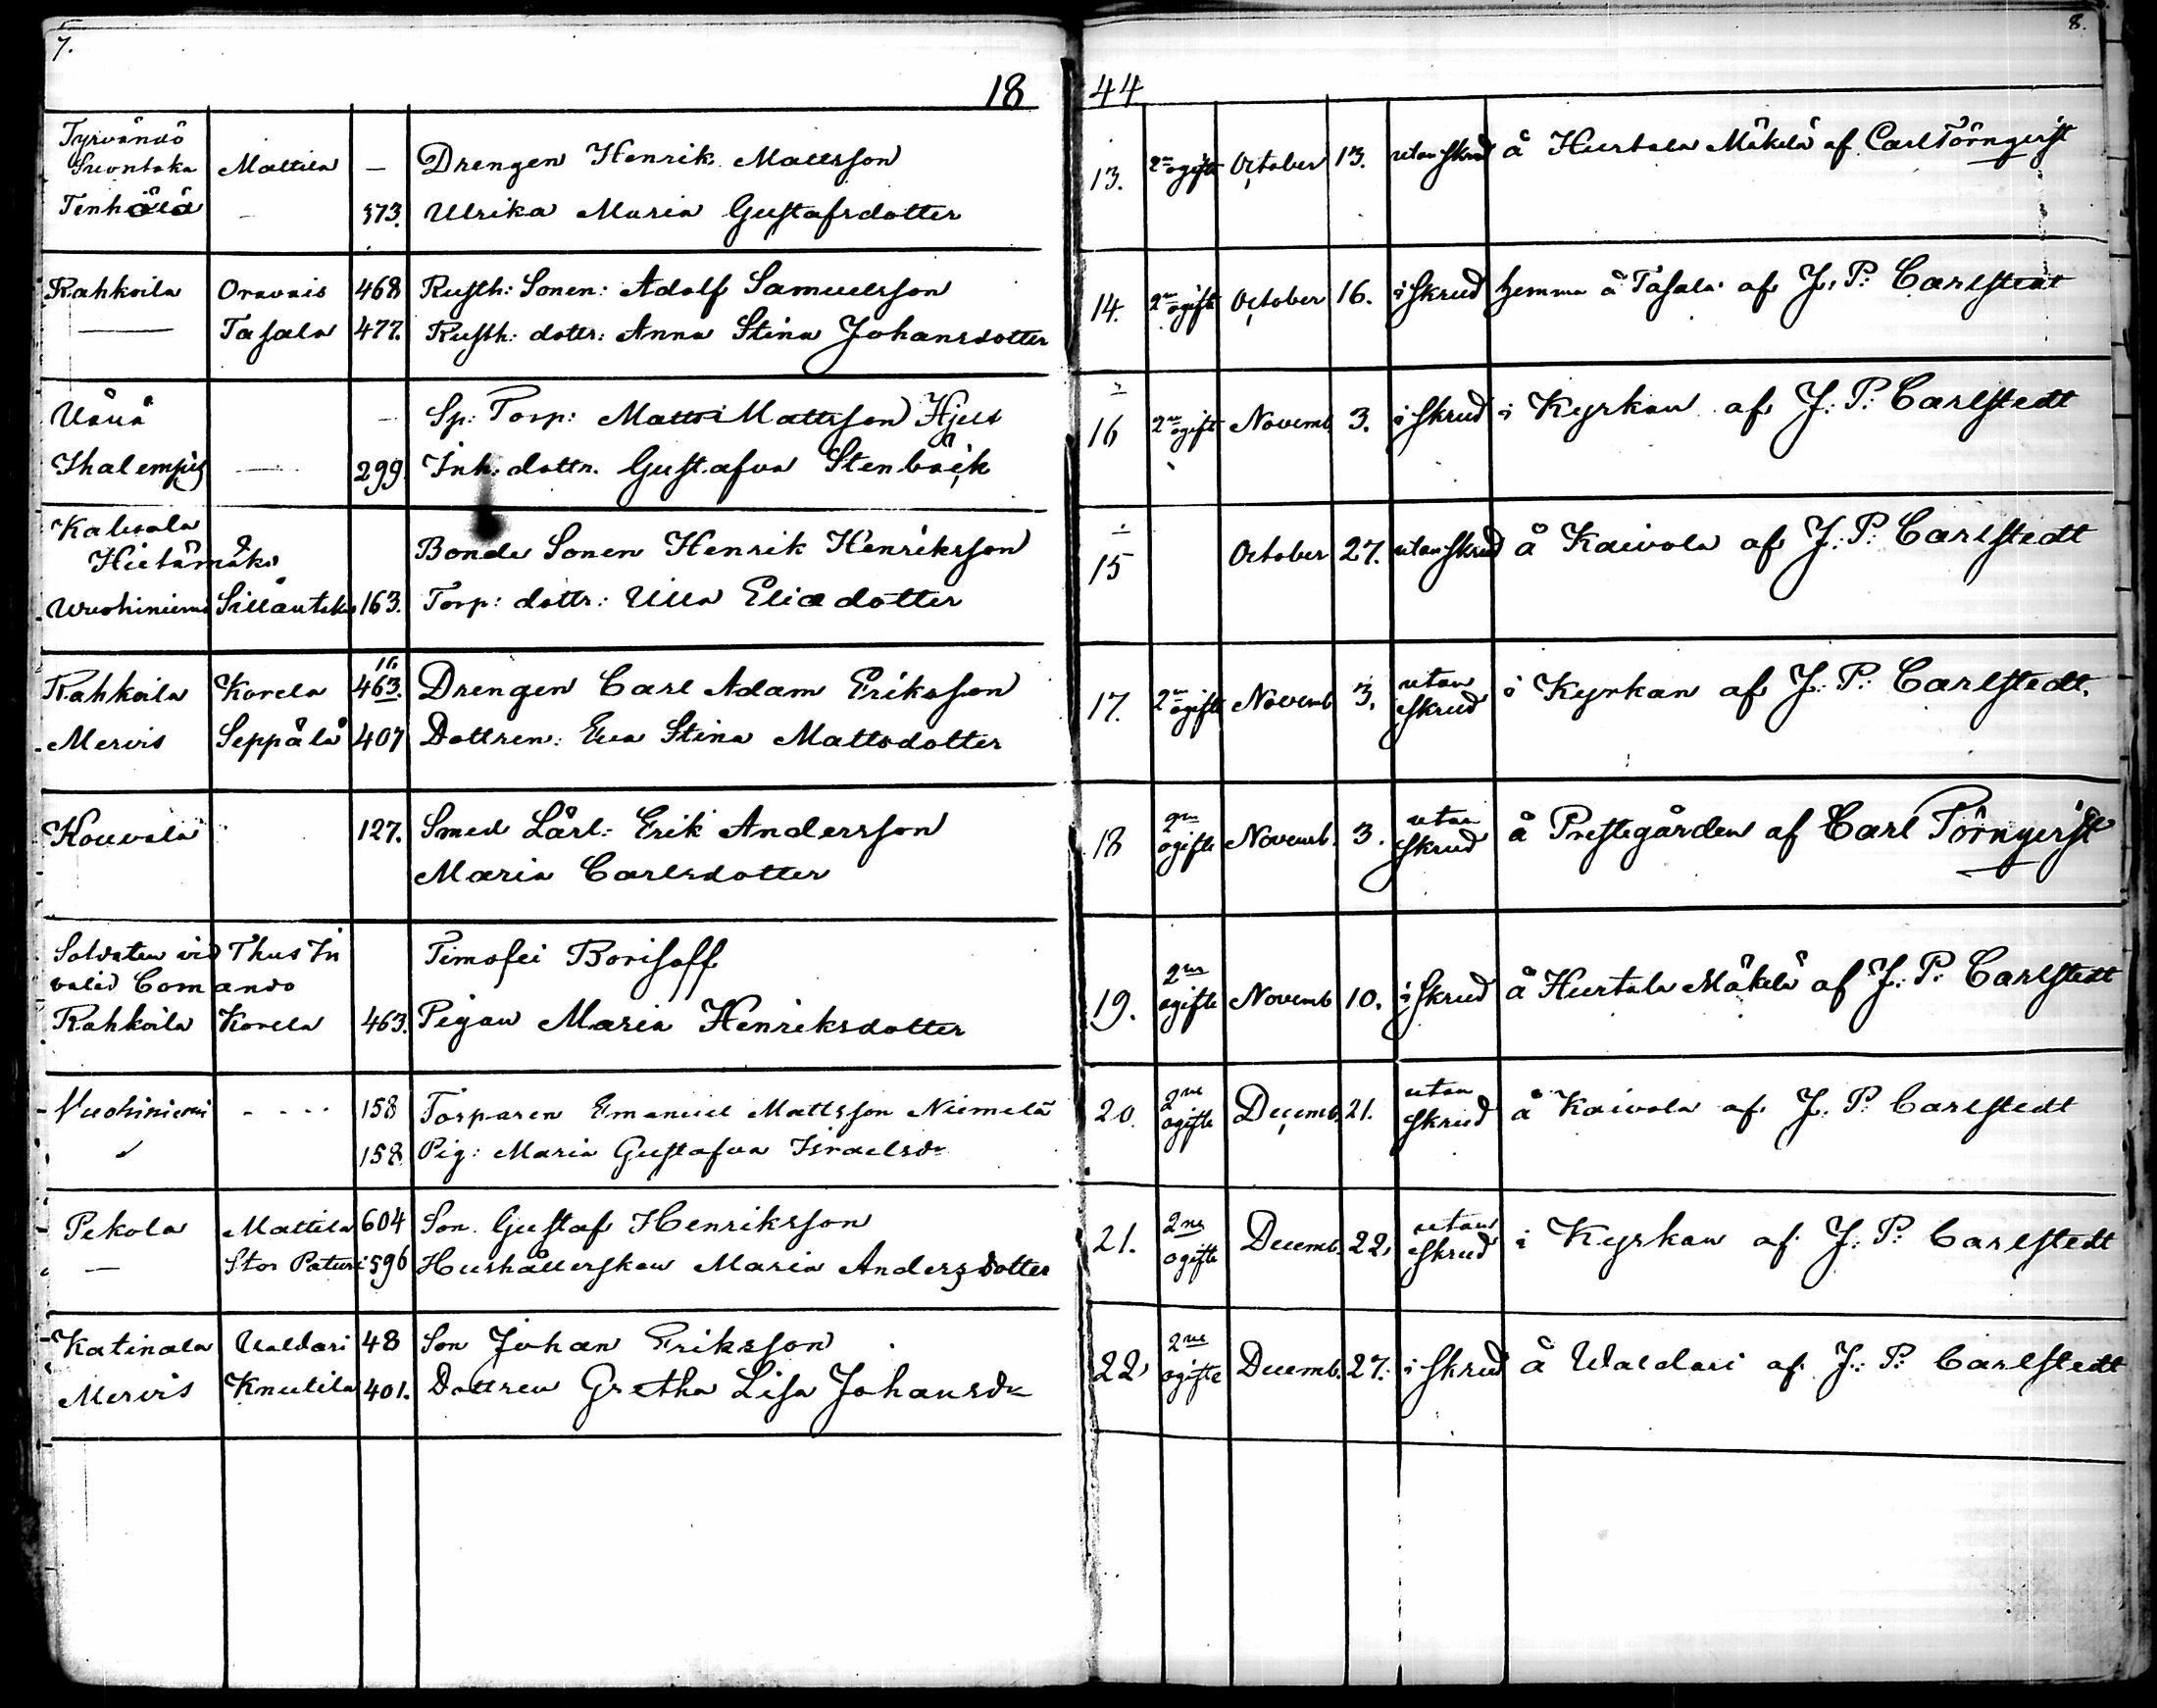 7.
8.
18 44
Tyrvändö
Suontaka Mattila — Drengen Henrik Mattsson
Tenhälä — 573. Ulrika Maria Gustafsdotter
13. 2ne ogifte October 13. utan skrud å Hurtala Mäkelä af Carl Törnqvist
Rahkoila Oravais 468 Rusth: Sonen: Adolf Samuelsson
— Tasala 477. Rusth: dottr: Anna Stina Johansdotter
14. 2ne ogifte October 16. i skrud hemma å Tasala af J. P. Carlstedt
Uånå — Sp: Torp: Matts Mattsson Hjelt
Ihalempis — 299 Inh: dottr. Gustafva Stenbäck
16 2ne ogifte Novemb. 3. i skrud i Kyrkan af J. P. Carlstedt
Kalvola
Hietamäki Bonde Sonen Henrik Henriksson
Wuohiniemi Sillantaka 163. Torp: dottr: Ulla Eliædotter
15 October 27. utan skrud å Kaivola af J. P. Carlstedt
Rahkoila Korela 463. Drengen Carl Adam Eriksson
Mervis Seppälä 407 Dottren: Eva Stina Mattsdotter
17. 2ne ogifte Novemb. 3. utan
skrud i Kyrkan af J. P. Carlstedt.
Kouvala 127. Smed Lärl: Erik Andersson
Maria Carlsdotter
18 2ne
ogifte Novemb. 3. utan
skrud å Prestegården af Carl Törnqvist
Soldaten vid Thus In
valid Comando Timofei Borisoff
Rahkoila Korela 463. Pigan Maria Henriksdotter
19. 2ne
ogifte Novemb 10. i skrud å Hurtala Mäkelä af J. P. Carlstedt
Vuohiniemi - - - - 158 Torparen Emanuel Mattsson Niemelä
158 Pig: Maria Gustafva Israelsdr
20. 2ne
ogifte Decemb. 21. utan
skrud å Kaivola af J. P. Carlstedt
Pekola Mattila 604 Son. Gustaf Henriksson
— Stor Paturi 596 Hushållerskan Maria Andersdotter
21. 2ne
ogifte Decemb. 22. utan
skrud i Kyrkan af J. P. Carlstedt
Katinala Ualdari 48 Son Johan Eriksson
Mervis Knutila 401. Dottren Gretha Lisa Johansdr
22 2ne
ogifte Decemb. 27. i skrud å Waldari af J. P. Carlstedt